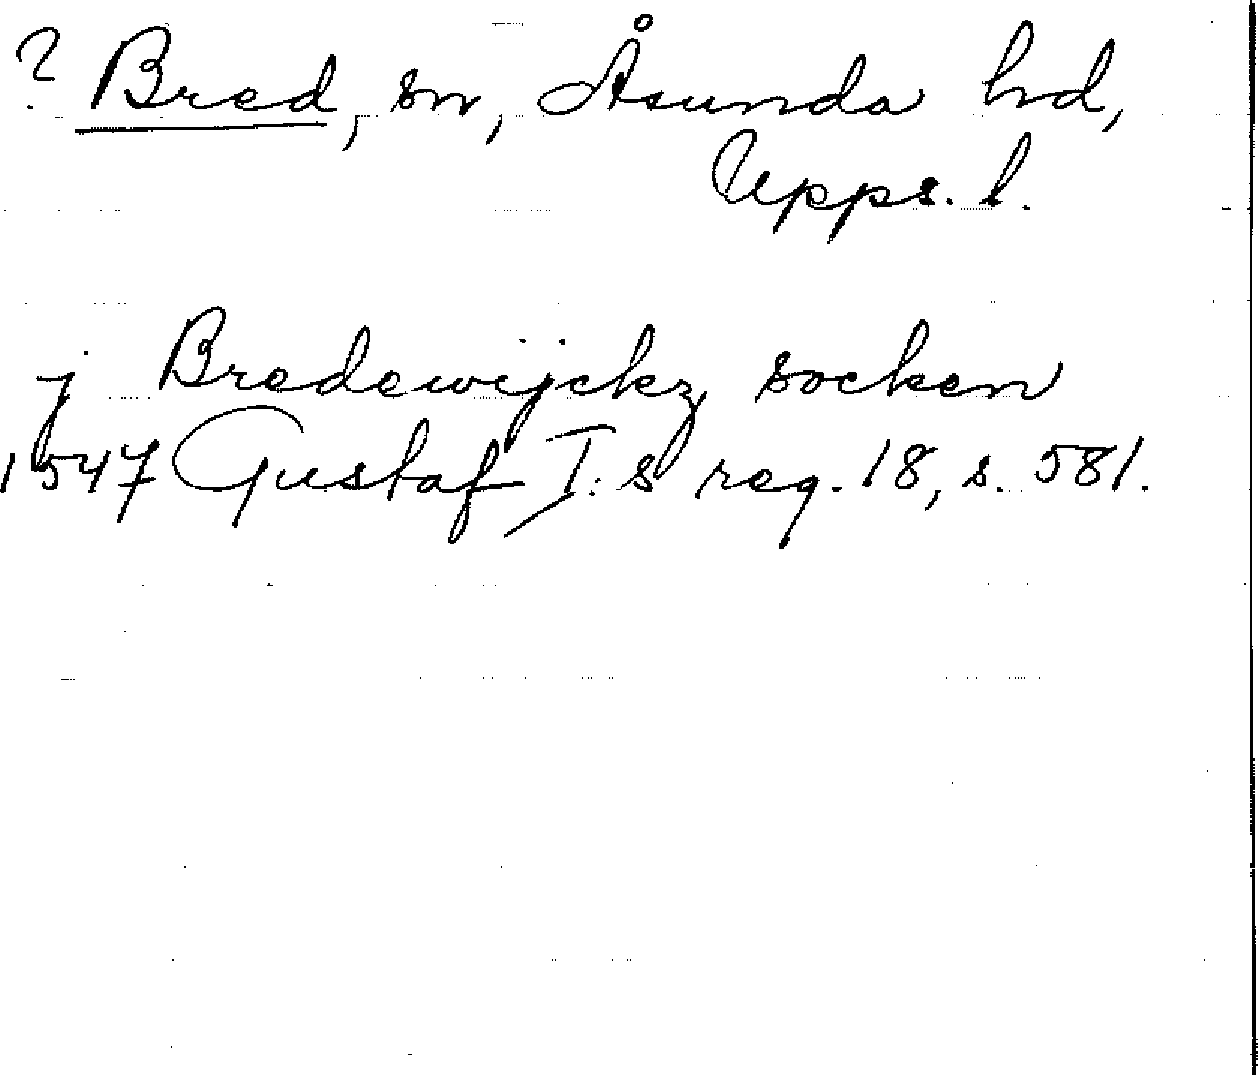 ? Bred, sn, Åsunda hd,
Upps. l.
j Bredewijckz socken
1547 Gustaf I:s reg. 18, s. 581.